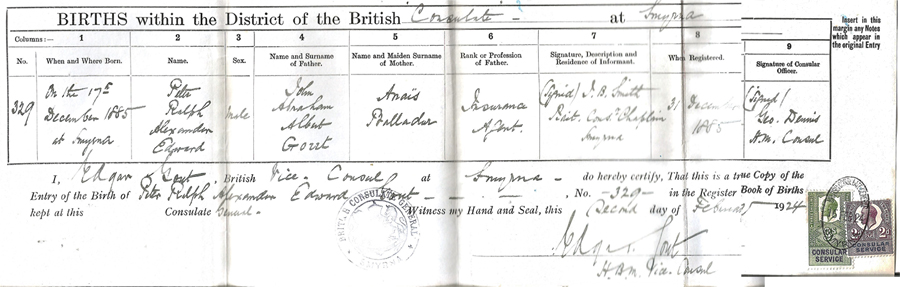 BIRTHS within the District of the British Consulate – at Smyrna
Insert in this
margin any Notes
which appear in
the original Entry
Columns:— 1 2 3 4 5 6 7 8 9
No. When and Where Born. Name. Sex. Name and Surname of Father. Name and Maiden Surname of Mother. Rank or Profession of Father. Signature, Description and Residence of Informant. When Registered. Signature of Consular Officer.
329
On the 17th
December 1885
at Smyrna
Peter
Ralph
Alexander
Edward
Male
John
Abraham
Albert
Gout
Anaïs
Balladur
Insurance
Agent.
(Signed) J. B. Smith
Brit. Cons. Chaplain
Smyrna
31
December
1885
(Signed)
Geo. Dennis
H.M. Consul
I, Edgar Gout, British Vice-Consul at Smyrna – do hereby certify, That this is a true Copy of the
Entry of the Birth of Peter Ralph Alexander Edward Gout – , No. –329– in the Register Book of Births
kept at this Consulate General – Witness my Hand and Seal, this Second day of February 1924
Edgar Gout
H.B.M. Vice-Consul
BRITISH CONSULATE GENERAL
SMYRNA
CONSULAR
SERVICE
2d
CONSULAR
SERVICE